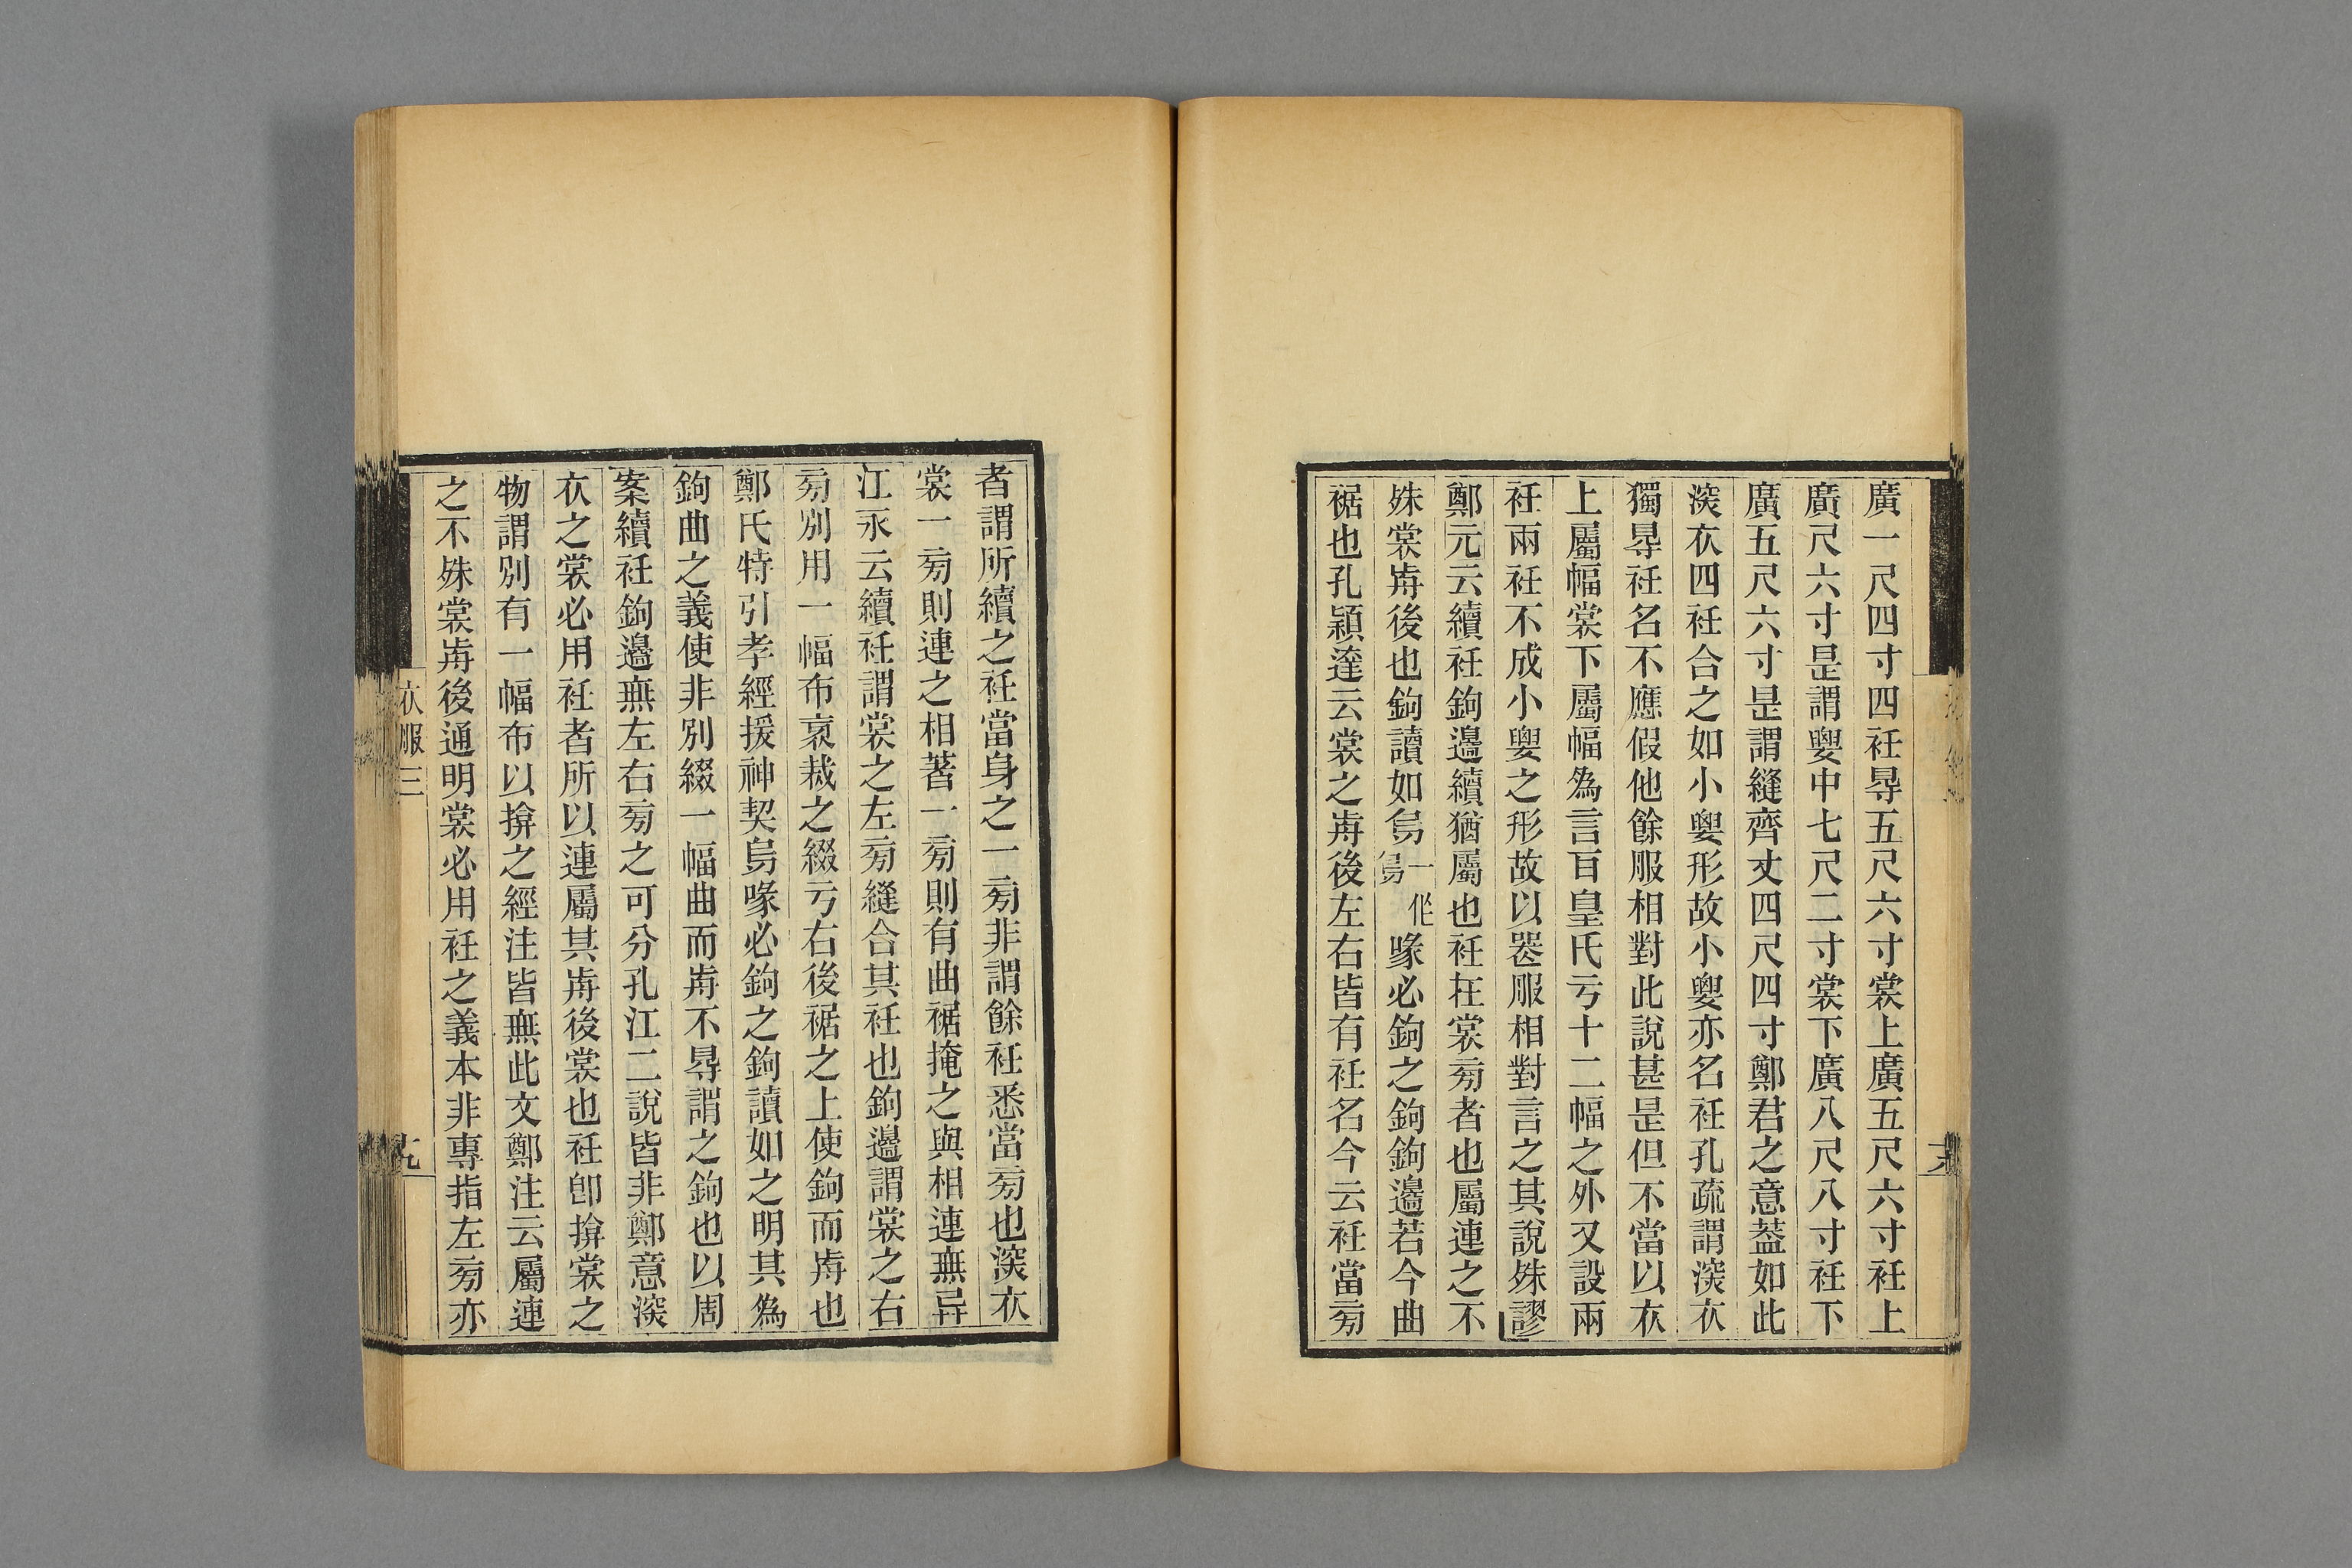 廣一尺四寸四衽㝵五尺六寸裳上廣五尺六寸衽上
廣尺六寸是謂要中七尺二寸裳下廣八尺八寸衽下
廣五尺六寸是謂縫齊丈四尺四寸鄭君之意葢如此
深衣四衽合之如小要形故小要亦名衽孔疏謂深衣
獨㝵衽名不應假他餘服相對此說甚是但不當以衣
上屬幅裳下屬幅為言百皇氏亏十二幅之外又設兩
衽兩衽不成小要之形故以喪服相對言之其說殊謬
鄭元云續衽鉤邊續猶屬也衽在裳㫄者也屬連之不
殊裳歬後也鉤讀如鳥一作鳥喙必鉤之鉤鉤邊若今曲
裾也孔穎達云裳之歬後左右皆有衽名今云衽當㫄
者謂所續之衽當身之一㫄非謂餘衽悉當㫄也深衣
裳一㫄則連之相著一㫄則有曲裾掩之與相連無異
江永云續衽謂裳之左㫄縫合其衽也鉤邊謂裳之右
㫄別用一幅布袤裁之綴亏右後裾之上使鉤而歬也
鄭氏特引孝經援神契鳥喙必鉤之鉤讀如之明其為
鉤曲之義使非別綴一幅曲而歬不㝵謂之鉤也以周
案續衽鉤邊無左右㫄之可分孔江二說皆非鄭意深
衣之裳必用衽者所以連屬其歬後裳也衽卽揜裳之
物謂別有一幅布以揜之經注皆無此文鄭注云屬連
之不殊裳歬後通明裳必用衽之義本非專指左㫄亦
衣服三
十九